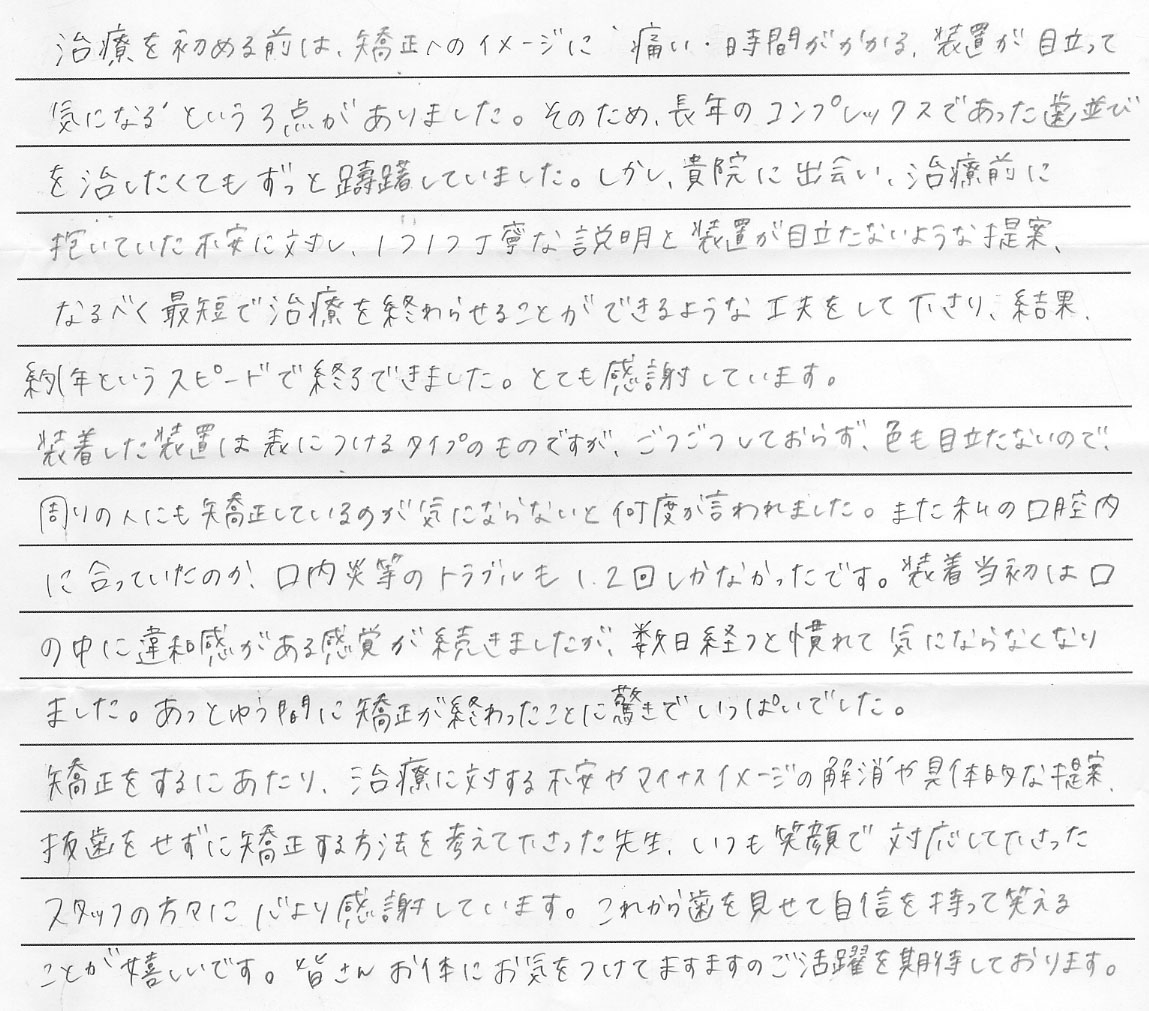 治療を初める前は、矯正へのイメージに"痛い・時間がかかる、装置が目立って
気になる"という3点がありました。そのため、長年のコンプレックスであった歯並び
を治したくてもずっと躊躇していました。しかし、貴院に出会い、治療前に
抱いていた不安に対し、1つ1つ丁寧な説明と装置が目立たないような提案、
なるべく最短で治療を終わらせることができるような工夫をして下さり、結果、
約1年というスピードで終了できました。とても感謝しています。
装着した装置は表につけるタイプのものですが、ごつごつしておらず、色も目立たないので、
周りの人にも矯正しているのが気にならないと何度か言われました。また私の口腔内
に合っていたのか、口内炎等のトラブルも1、2回しかなかったです。装着当初は口
の中に違和感がある感覚が続きましたが、数日経つと慣れて気にならなくなり
ました。あっとゆう間に矯正が終わったことに驚きでいっぱいでした。
矯正をするにあたり、治療に対する不安やマイナスイメージの解消や具体的な提案、
抜歯をせずに矯正する方法を考えて下さった先生、いつも笑顔で対応して下さった
スタッフの方々に心より感謝しています。これから歯を見せて自信を持って笑える
ことが嬉しいです。皆さんお体にお気をつけてますますのご活躍を期待しております。